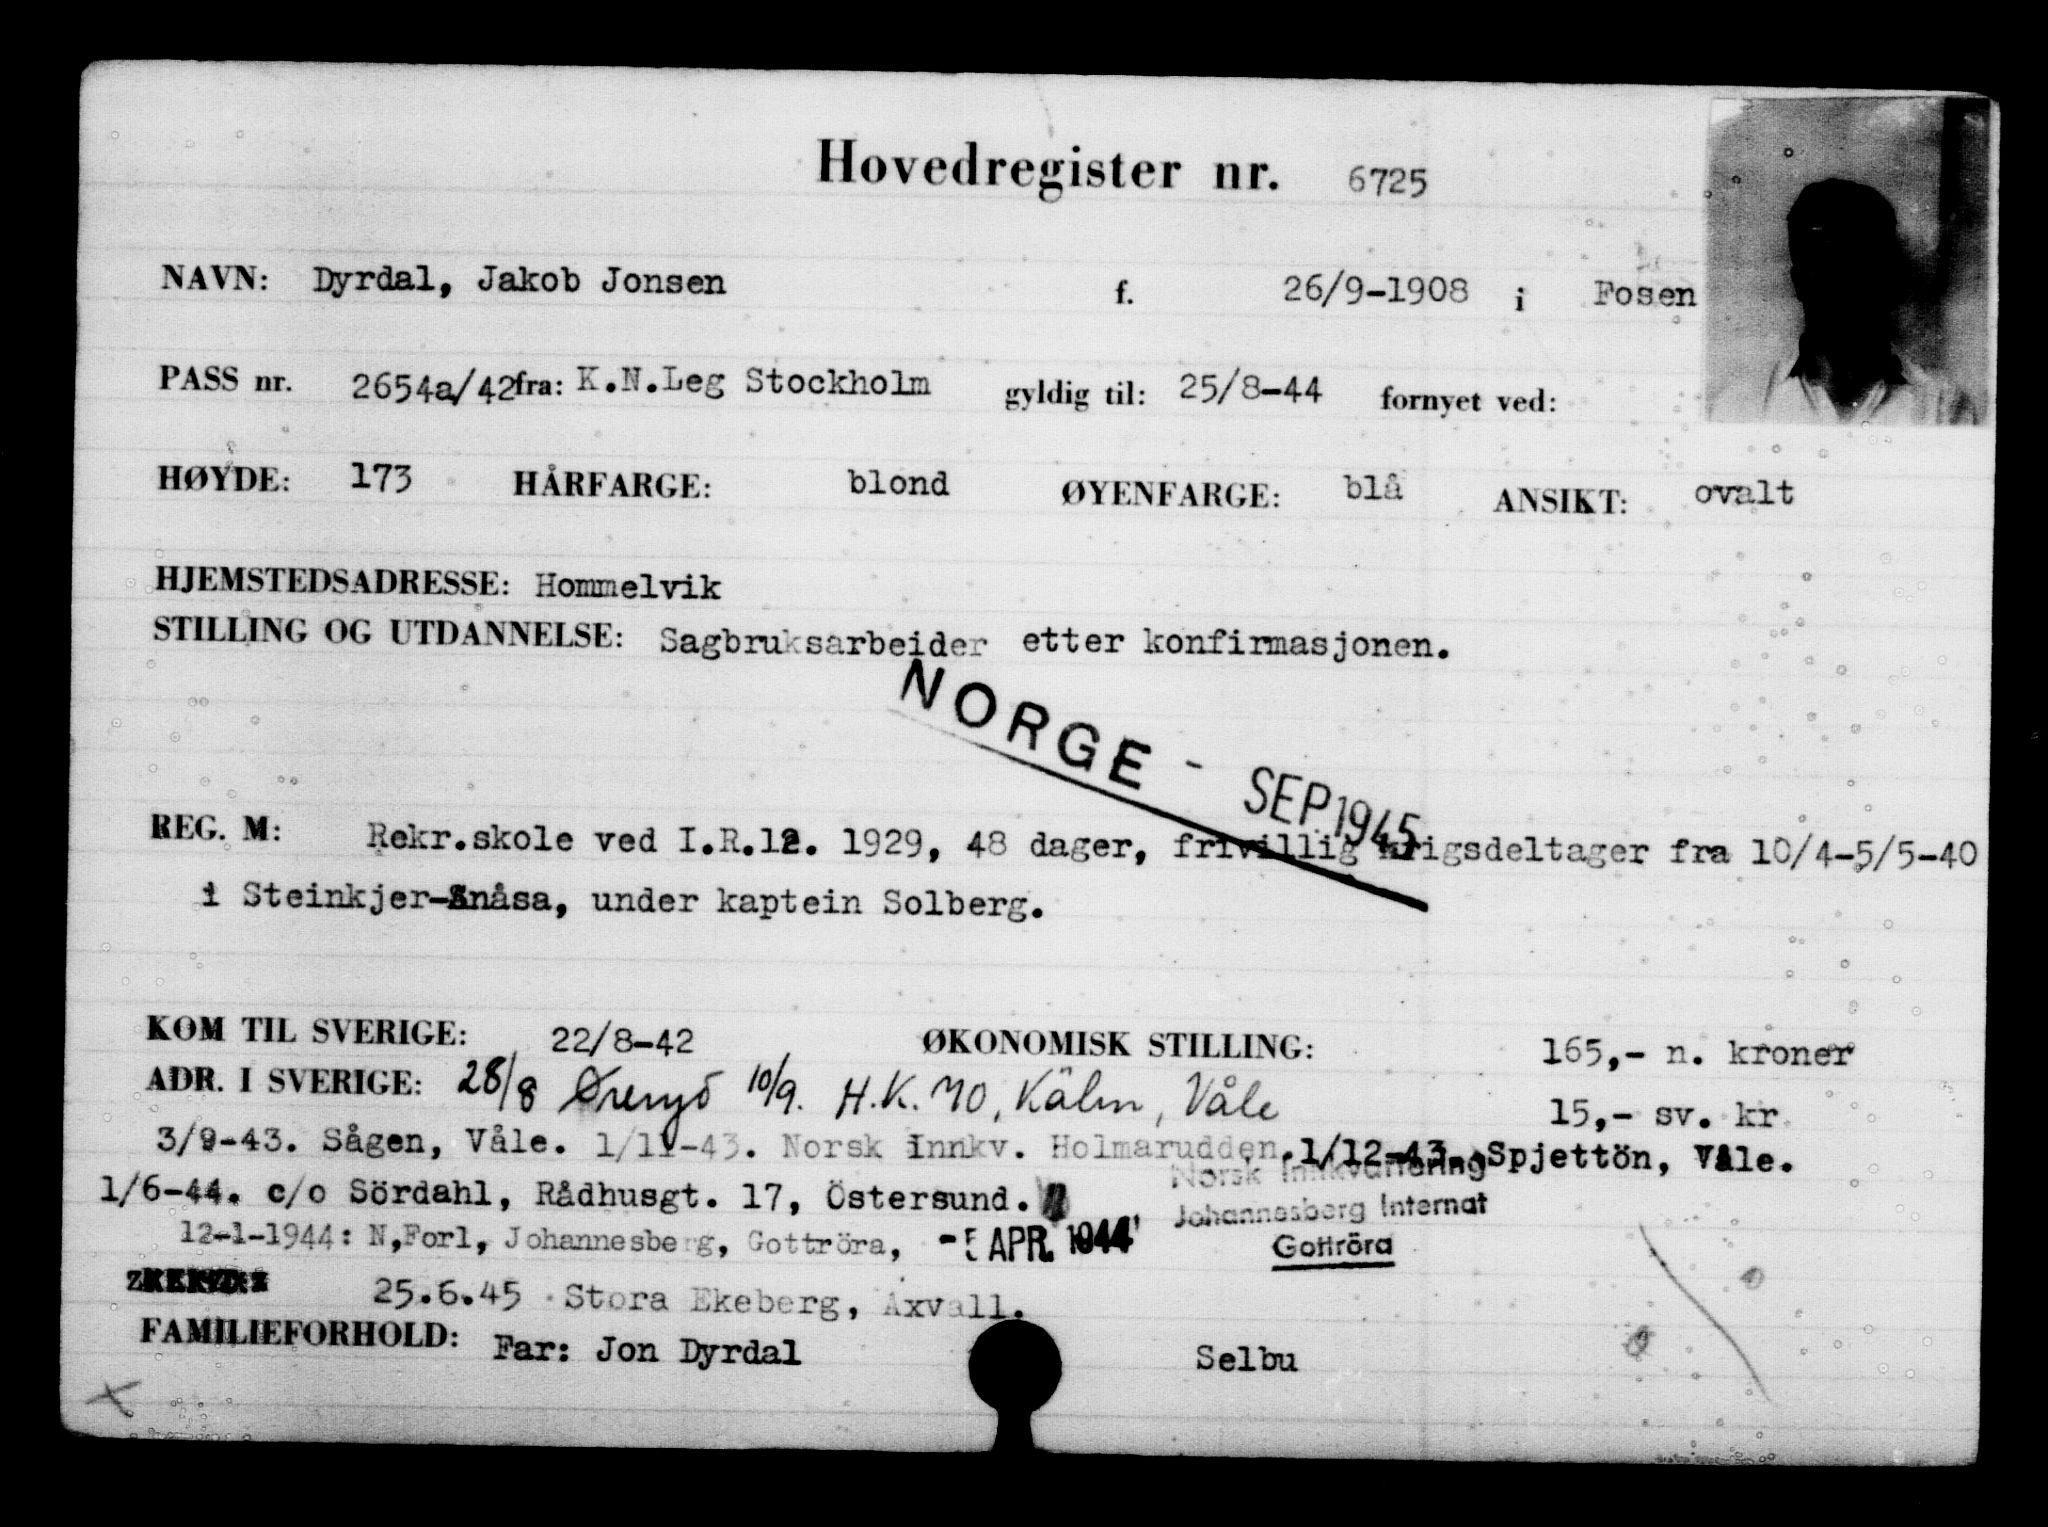 Hovedregister nr. 6725
NAVN: Dyrdal, Jakob Jonsen f. 26/9-1908 i Fosen
PASS nr. 2654a/42 fra: K.N.Leg Stockholm gyldig til: 25/8-44 fornyet ved:
HØYDE: 173 HÅRFARGE: blond ØYENFARGE: blå ANSIKT: ovalt
HJEMSTEDSADRESSE: Hommelvik
STILLING OG UTDANNELSE: Sagbruksarbeider etter konfirmasjonen.
NORGE - SEP 1945
REG. M: Rekr.skole ved I.R.12. 1929, 48 dager, frivillig krigsdeltager fra 10/4-5/5-40
i Steinkjer-Snåsa, under kaptein Solberg.
KOM TIL SVERIGE: 22/8-42 ØKONOMISK STILLING: 165,- n. kroner
ADR. I SVERIGE: 28/8 10/9. H.K. 70, Kälen, Våle 15,- sv. kr
3/9-43. Sågen, Våle. 1/11-43. Norsk Innkv. Holmarudden. 1/12-43. Spjettön, Våle.
Norsk Innkvartering
1/6-44. c/o Sördahl, Rådhusgt. 17, Östersund.
Johannesberg Internat
12-1-1944: N,Forl, Johannesberg, Gottröra, -5 APR. 1944
Gottröra
25.6.45 Stora Ekeberg, Axvall.
FAMILIEFORHOLD: Far: Jon Dyrdal Selbu